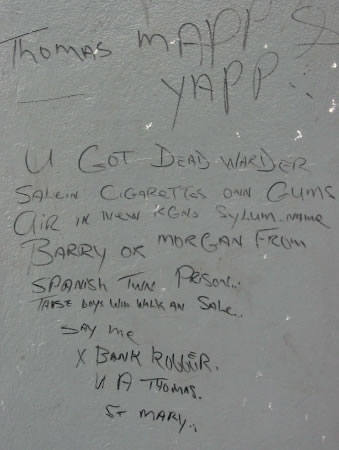 THOMAS MAPP &
YAPP..
U GOT DEAD WARDER
SALEIN CIGARETTES ONN GUMS
AIR IN NEW KGNS SYLUM. NAME
BARRY OR MORGAN FROM
SPANISH TWN. PRISON..
THESE BOYS WHO WALK AN SALE..
SAY ME
X BANK ROBBER.
U A THOMAS.
ST MARY..